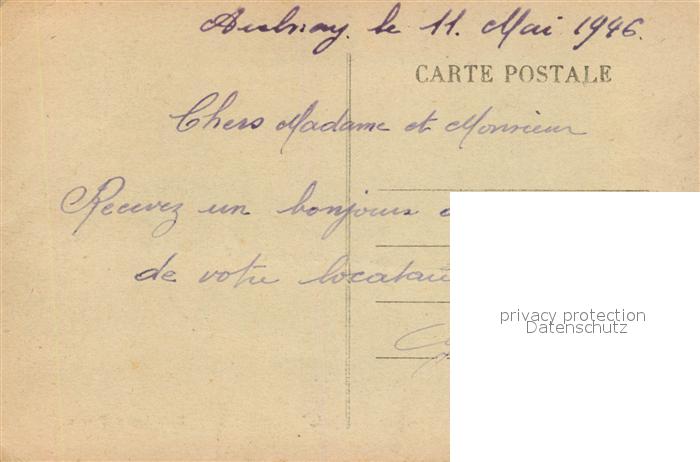 Aulnay. le 11. Mai. 1946.
CARTE POSTALE
Chers Madame et Monsieur
Recevez un bonjour
de votre
privacy protection
Datenschutz